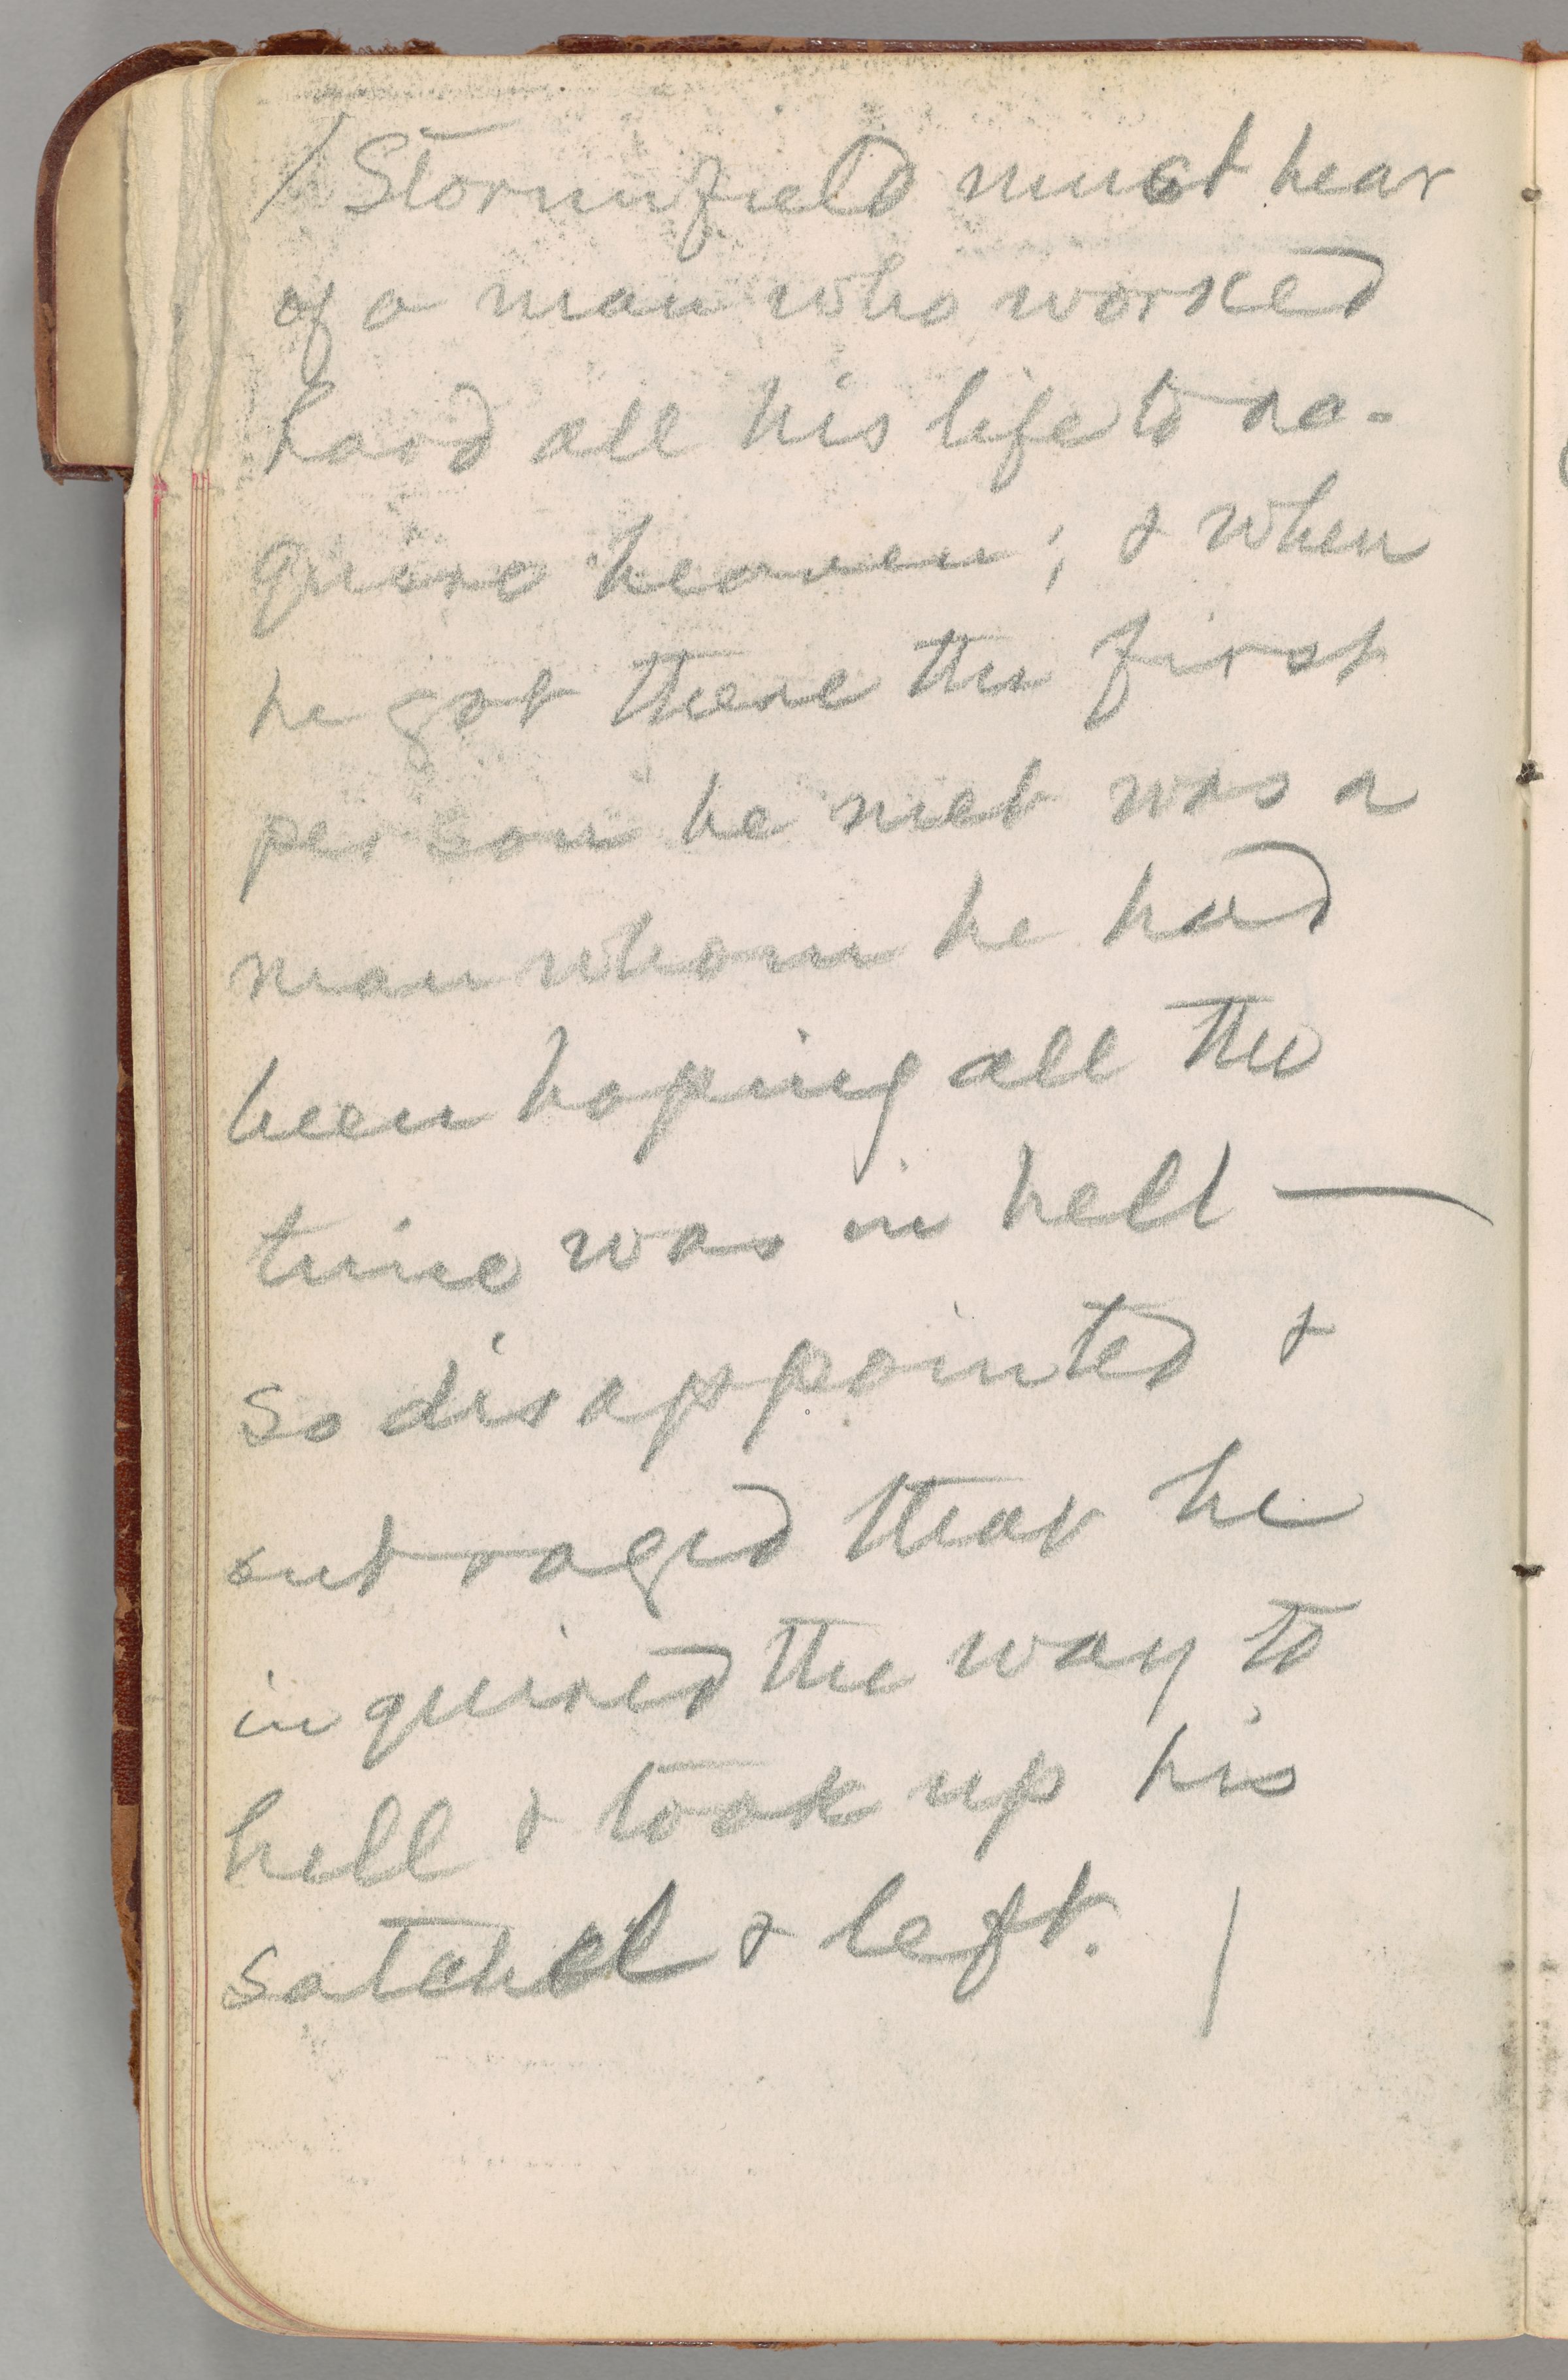 / Stormfield must hear
of a man who worked
hard all his life to ac-
quire heaven; & when
he got there the first
person he met was a
man whom he had
been hoping all the
time was in hell —
so disappointed &
outraged that he
inquired the way to
hell & took up his
satchel & left. /